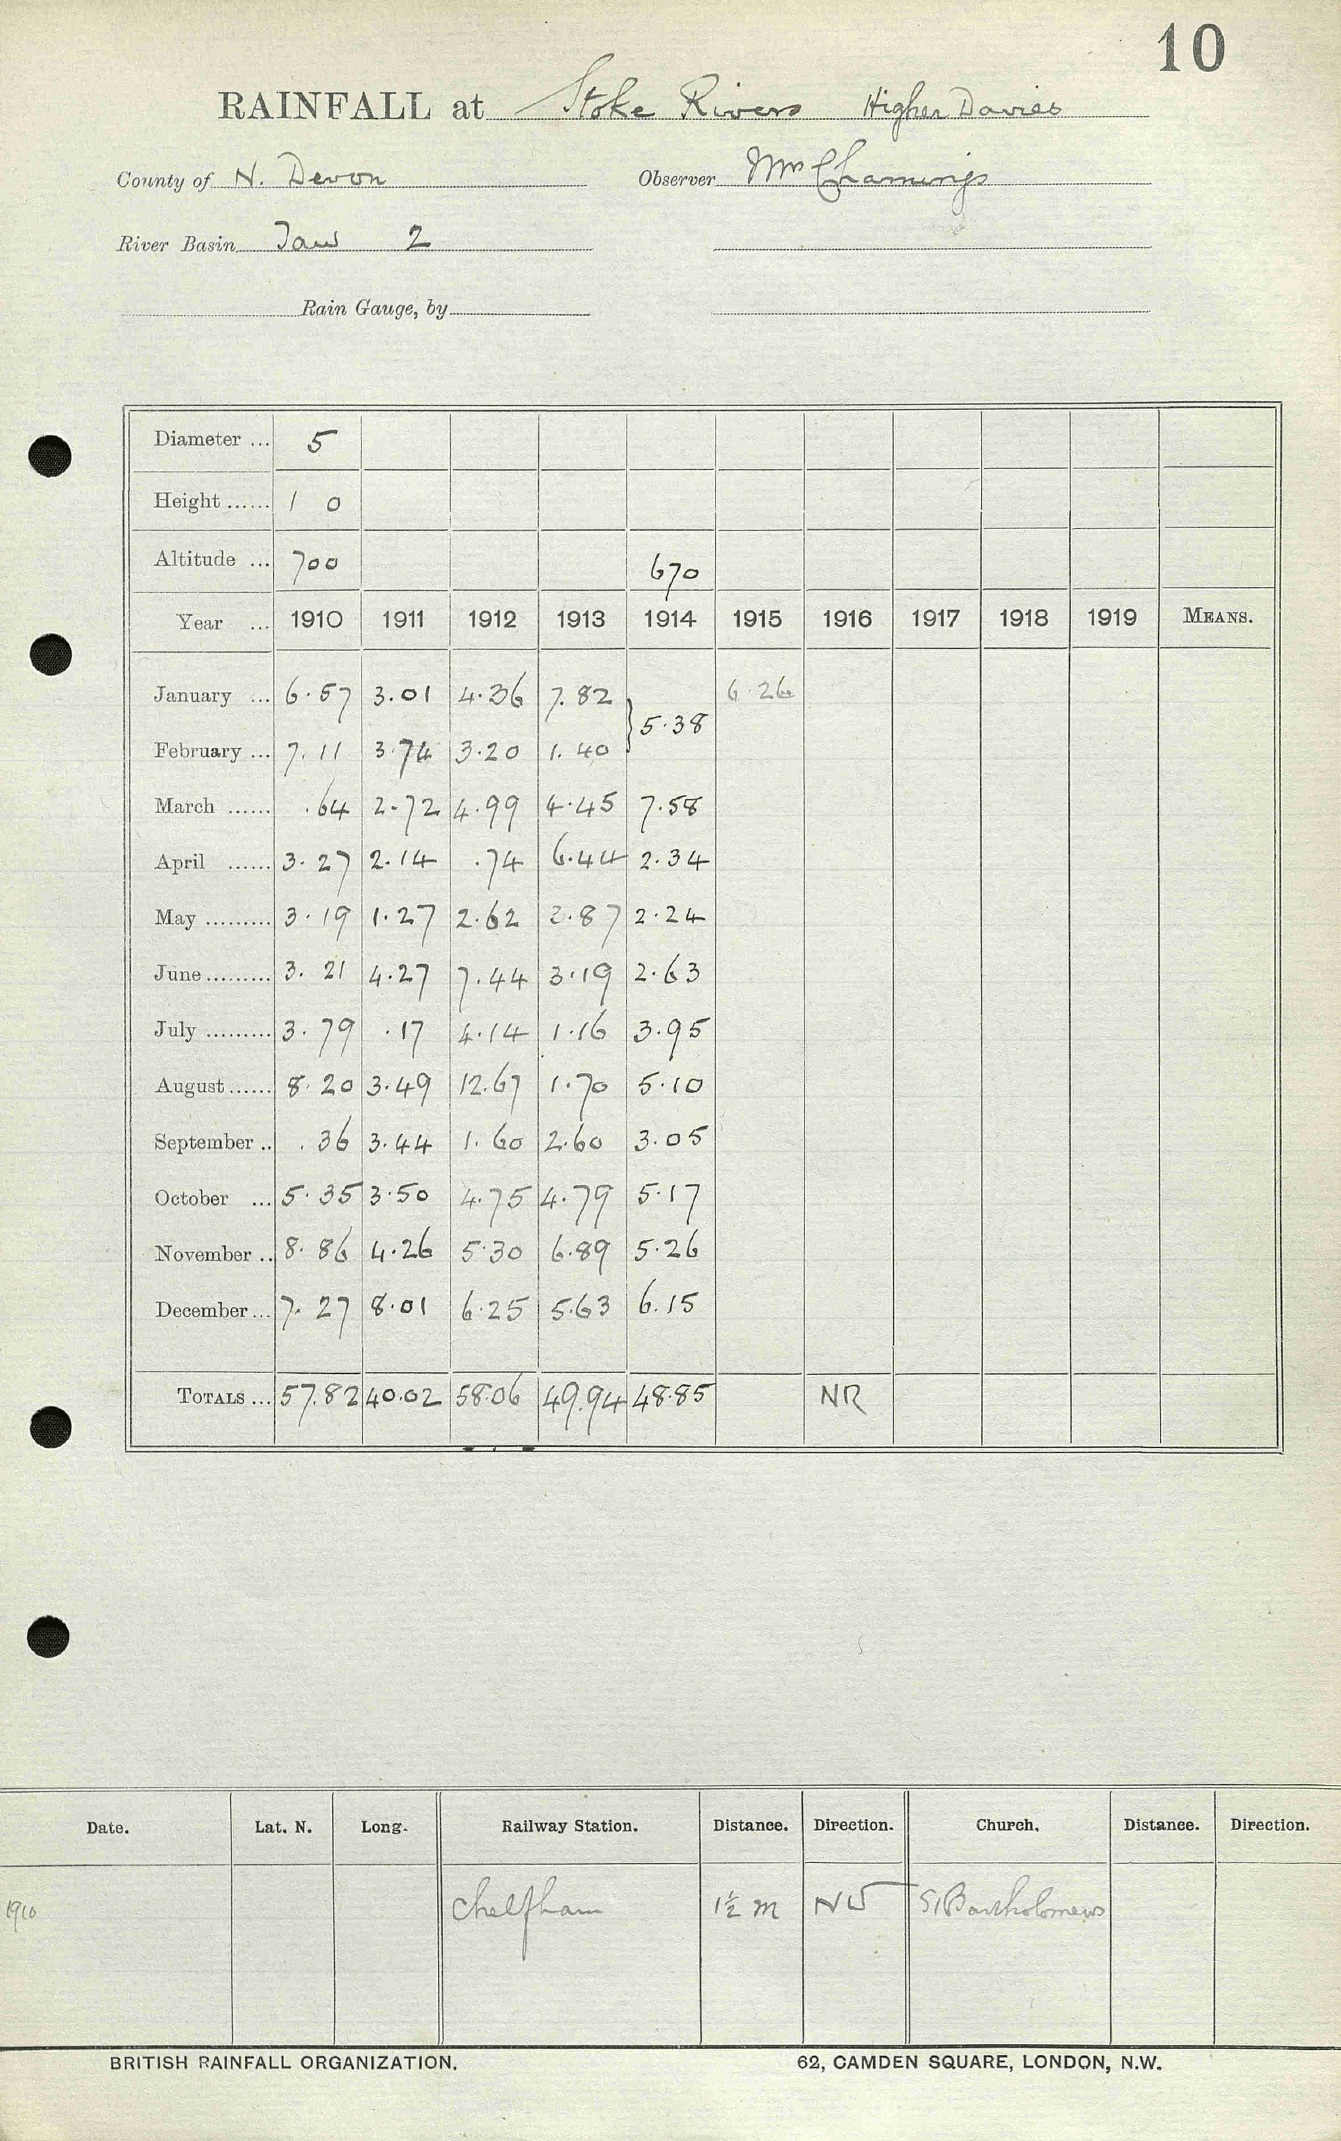 10
RAINFALL at Stoke Rivers Higher Davies
County of N. Devon Observer Mrs Chamings
River Basin Taw 2
Rain Gauge, by
Diameter ... 5
Height ...... 1 0
Altitude ... 700 670
Year ... 1910 1911 1912 1913 1914 1915 1916 1917 1918 1919 MEANS.
January ... 6.57 3.01 4.36 7.82 6.26
5.38
February ... 7.11 3.74 3.20 1.40
March ...... .64 2.72 4.99 4.45 7.58
April ...... 3.27 2.14 .74 6.44 2.34
May ......... 3.19 1.27 2.62 2.87 2.24
June ......... 3.21 4.27 7.44 3.19 2.63
July ......... 3.79 .17 4.14 1.16 3.95
August ...... 8.20 3.49 12.67 1.70 5.10
September .. .36 3.44 1.60 2.60 3.05
October ... 5.35 3.50 4.75 4.79 5.17
November .. 8.86 4.26 5.30 6.89 5.26
December ... 7.27 8.01 6.25 5.63 6.15
TOTALS ... 57.82 40.02 58.06 49.94 48.85 NR
Date. Lat. N. Long. Railway Station. Distance. Direction. Church. Distance. Direction.
1910 Chelfham 1½ m NW St Bartholomews
BRITISH RAINFALL ORGANIZATION. 62, CAMDEN SQUARE, LONDON, N.W.